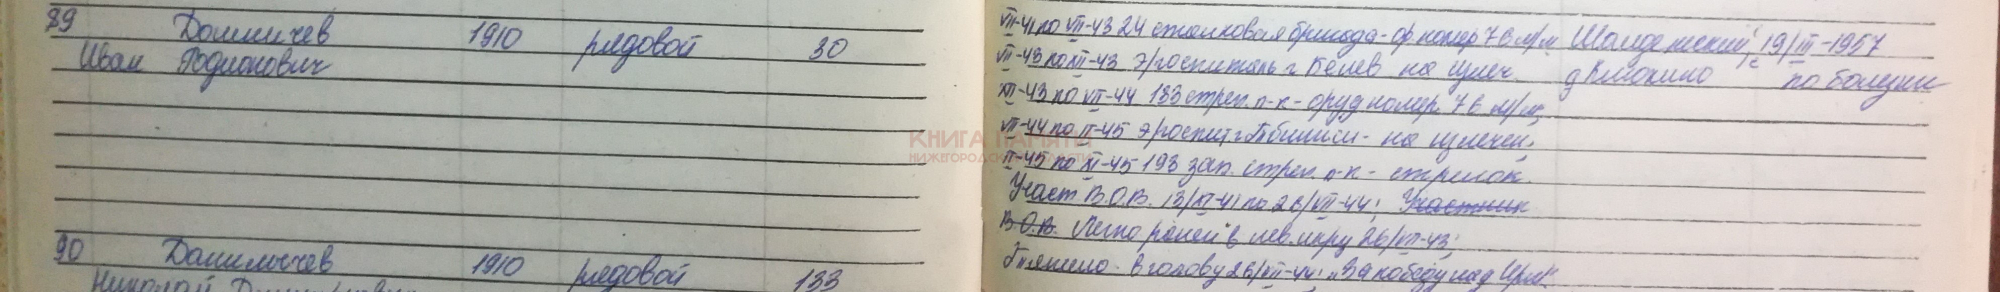 89 Даниличев 1910 рядовой 30
Иван Родионович
VII-41 по VII-43 24 стрелковая бригада - ор номер 76 м/м Шолденский, 19/III-1957
VII-43 по XII-43 э/госпиталь г Белев на излеч. д по болезни
XII-43 по VII-44 133 стрел. п-к - оруд номер 76 м/м,
VII-44 по II-45 э/госпит г Тбилиси - на излечен,
II-45 по XI-45 193 зап. стрел. п-к - стрелок
Участ В.О.В. 13/XI-41 по 26/VII-44; Участник
В.О.В. Легко ранен в лев. икру 26/VII-43;
тяжело - в голову 26/VII-44; "За победу над
90 Данилычев 1910 рядовой 133
Николай
КНИГА ПАМЯТИ